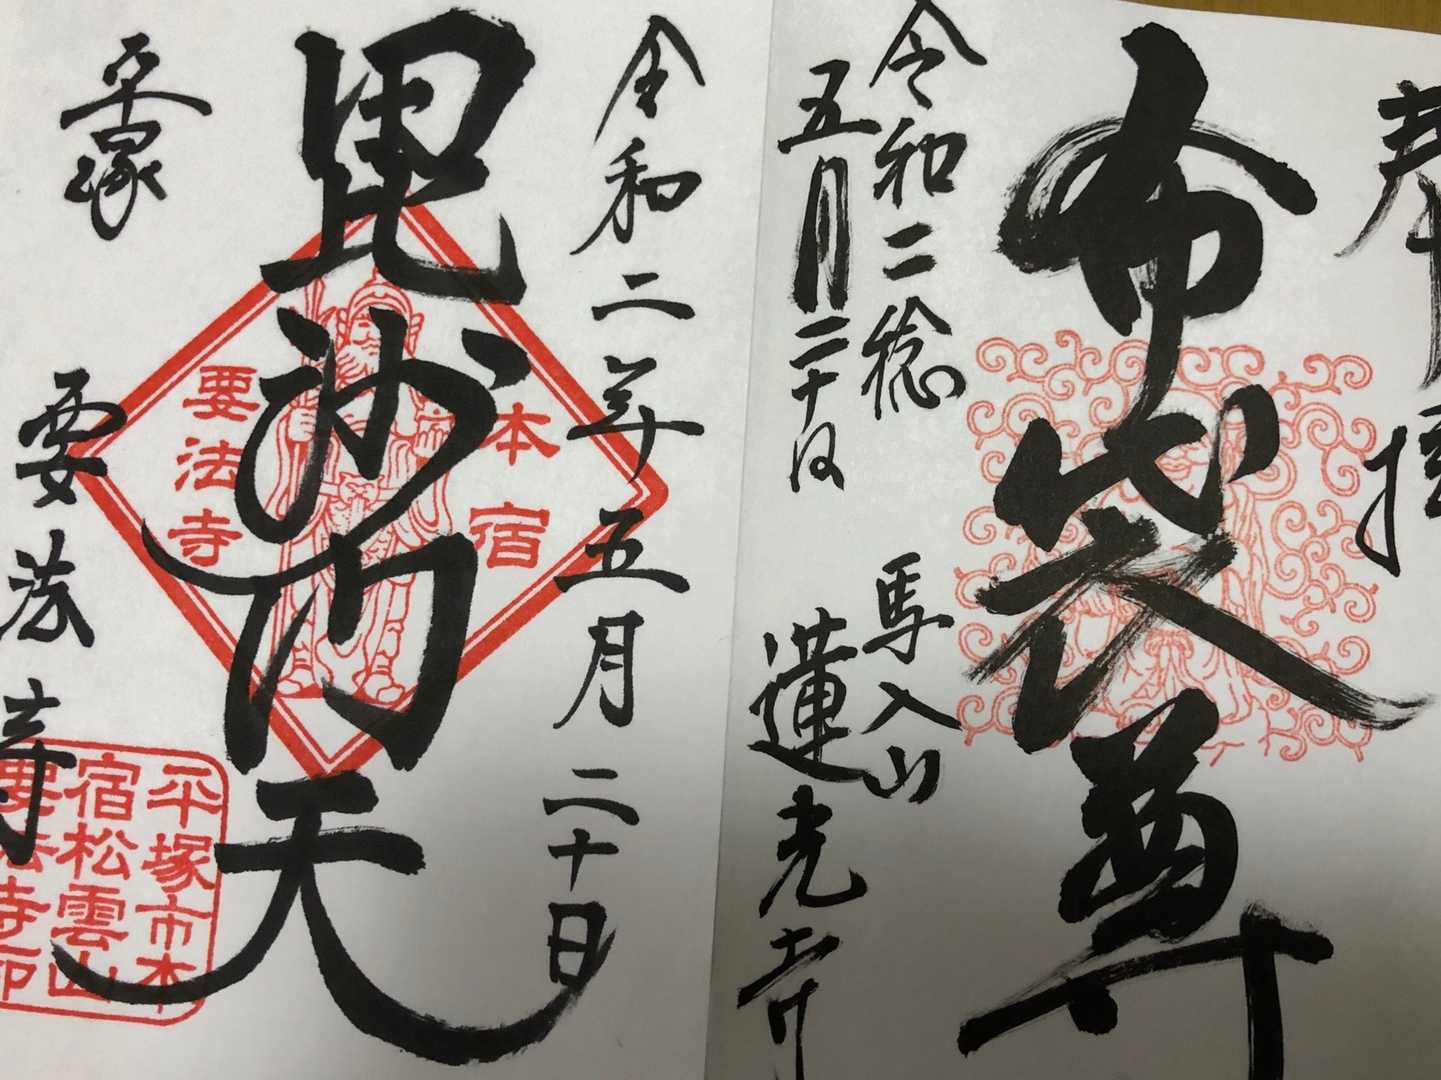 奉拝
布袋尊
令和二稔
五月二十日
馬入山
蓮光寺
令和二年五月二十日
毘沙門天
本宿
要法寺
平塚
要法寺
平塚市本
宿松雲山
要法寺印